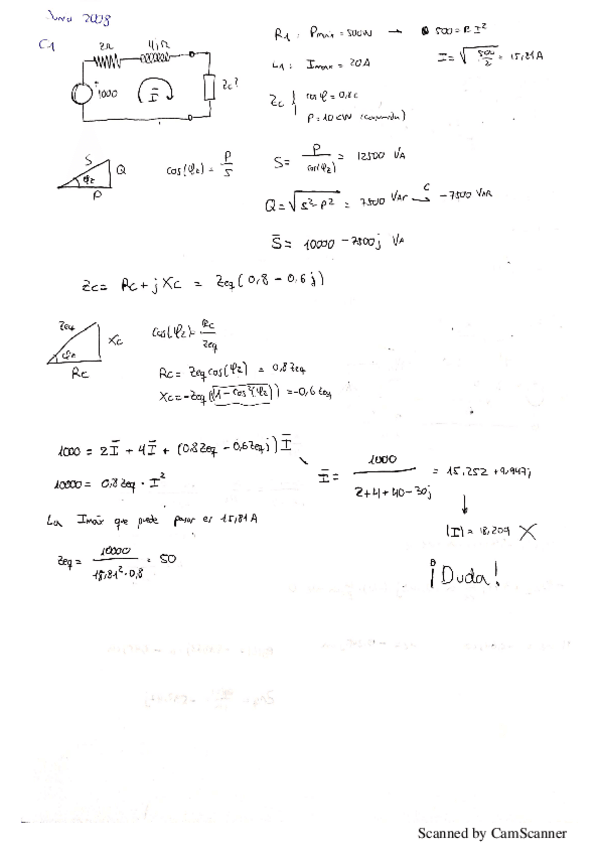 Junio 2008
C1
2Ω 4jΩ
1000
Ī
Zc?
R1: Pmáx = 500W → 500 = R I²
I = √(500/2) = 15,81A
L1: Imax = 20A
Zc { cos φ = 0,8c
P = 10 kW (consumida)
S Q φz P
cos(φz) = P/S
S = P/cos(φz) = 12500 VA
Q = √(S² - P²) = 7500 VAR →C -7500 VAR
S̄ = 10000 - 7500j VA
Zc = Rc + jXc = Zeq (0,8 - 0,6j)
Zeq Xc φz Rc
cos(φz) = Rc/Zeq
Rc = Zeq cos(φz) = 0,8 Zeq
Xc = -Zeq (√(1 - cos²(φz))) = -0,6 Zeq
1000 = 2Ī + 4Ī + (0,8Zeq - 0,6Zeq j) Ī
Ī = 1000/(2+4+40-30j) = 15,252 + 9,947j
10000 = 0,8Zeq · I²
|I| = 18,209 X
La Imáx que puede pasar es 15,81A
Zeq = 10000/(15,81² · 0,8) = 50
¡Duda!
Scanned by CamScanner